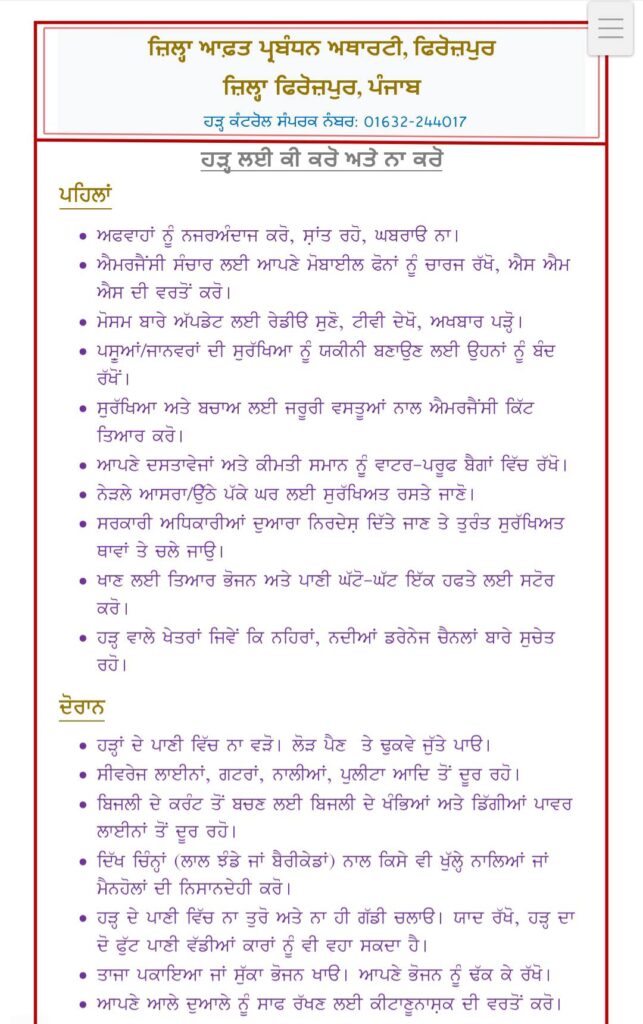 ਜ਼ਿਲ੍ਹਾ ਆਫ਼ਤ ਪ੍ਰਬੰਧਨ ਅਥਾਰਟੀ, ਫਿਰੋਜ਼ਪੁਰ
ਜ਼ਿਲ੍ਹਾ ਫਿਰੋਜ਼ਪੁਰ, ਪੰਜਾਬ
ਹੜ੍ਹ ਕੰਟਰੋਲ ਸੰਪਰਕ ਨੰਬਰ: 01632-244017
ਹੜ੍ਹ ਲਈ ਕੀ ਕਰੋ ਅਤੇ ਨਾ ਕਰੋ
ਪਹਿਲਾਂ
• ਅਫਵਾਹਾਂ ਨੂੰ ਨਜਰਅੰਦਾਜ ਕਰੋ, ਸ਼ਾਂਤ ਰਹੋ, ਘਬਰਾੳ ਨਾ।
• ਐਮਰਜੈਂਸੀ ਸੰਚਾਰ ਲਈ ਆਪਣੇ ਮੋਬਾਈਲ ਫੋਨਾਂ ਨੂੰ ਚਾਰਜ ਰੱਖੋ, ਐਸ ਐਮ
ਐਸ ਦੀ ਵਰਤੋਂ ਕਰੋ।
• ਮੋਸਮ ਬਾਰੇ ਅੱਪਡੇਟ ਲਈ ਰੇਡੀੳ ਸੁਣੋ, ਟੀਵੀ ਦੇਖੋ, ਅਖਬਾਰ ਪੜ੍ਹੋ।
• ਪਸ਼ੂਆਂ/ਜਾਨਵਰਾਂ ਦੀ ਸੁਰੱਖਿਆ ਨੂੰ ਯਕੀਨੀ ਬਣਾਉਣ ਲਈ ਉਹਨਾਂ ਨੂੰ ਬੰਦ
ਰੱਖੋਂ।
• ਸੁਰੱਖਿਆ ਅਤੇ ਬਚਾਅ ਲਈ ਜਰੂਰੀ ਵਸਤੂਆਂ ਨਾਲ ਐਮਰਜੈਂਸੀ ਕਿੱਟ
ਤਿਆਰ ਕਰੋ।
• ਆਪਣੇ ਦਸਤਾਵੇਜਾਂ ਅਤੇ ਕੀਮਤੀ ਸਮਾਨ ਨੂੰ ਵਾਟਰ-ਪਰੂਫ ਬੈਗਾਂ ਵਿੱਚ ਰੱਖੋ।
• ਨੇੜਲੇ ਆਸਰਾ/ਉੱਠੇ ਪੱਕੇ ਘਰ ਲਈ ਸੁਰੱਖਿਅਤ ਰਸਤੇ ਜਾਣੋ।
• ਸਰਕਾਰੀ ਅਧਿਕਾਰੀਆਂ ਦੁਆਰਾ ਨਿਰਦੇਸ਼ ਦਿੱਤੇ ਜਾਣ ਤੇ ਤੁਰੰਤ ਸੁਰੱਖਿਅਤ
ਥਾਵਾਂ ਤੇ ਚਲੇ ਜਾਉ।
• ਖਾਣ ਲਈ ਤਿਆਰ ਭੋਜਨ ਅਤੇ ਪਾਣੀ ਘੱਟੋ-ਘੱਟ ਇੱਕ ਹਫਤੇ ਲਈ ਸਟੋਰ
ਕਰੋ।
• ਹੜ੍ਹ ਵਾਲੇ ਖੇਤਰਾਂ ਜਿਵੇਂ ਕਿ ਨਹਿਰਾਂ, ਨਦੀਆਂ ਡਰੇਨੇਜ ਚੈਨਲਾਂ ਬਾਰੇ ਸੁਚੇਤ
ਰਹੋ।
ਦੋਰਾਨ
• ਹੜ੍ਹਾਂ ਦੇ ਪਾਣੀ ਵਿੱਚ ਨਾ ਵੜੋ। ਲੋੜ ਪੈਣ ਤੇ ਢੁਕਵੇ ਜੁੱਤੇ ਪਾੳ।
• ਸੀਵਰੇਜ ਲਾਈਨਾਂ, ਗਟਰਾਂ, ਨਾਲੀਆਂ, ਪੁਲੀਟਾ ਆਦਿ ਤੋਂ ਦੂਰ ਰਹੋ।
• ਬਿਜਲੀ ਦੇ ਕਰੰਟ ਤੋਂ ਬਚਣ ਲਈ ਬਿਜਲੀ ਦੇ ਖੰਭਿਆਂ ਅਤੇ ਡਿੱਗੀਆਂ ਪਾਵਰ
ਲਾਈਨਾਂ ਤੋਂ ਦੂਰ ਰਹੋ।
• ਦਿੱਖ ਚਿੰਨ੍ਹਾਂ (ਲਾਲ ਝੰਡੇ ਜਾਂ ਬੈਰੀਕੇਡਾਂ) ਨਾਲ ਕਿਸੇ ਵੀ ਖੁੱਲ੍ਹੇ ਨਾਲਿਆਂ ਜਾਂ
ਮੈਨਹੋਲਾਂ ਦੀ ਨਿਸਾਨਦੇਹੀ ਕਰੋ।
• ਹੜ੍ਹ ਦੇ ਪਾਣੀ ਵਿੱਚ ਨਾ ਤੁਰੋ ਅਤੇ ਨਾ ਹੀ ਗੱਡੀ ਚਲਾੳ। ਯਾਦ ਰੱਖੋ, ਹੜ੍ਹ ਦਾ
ਦੋ ਫੁੱਟ ਪਾਣੀ ਵੱਡੀਆਂ ਕਾਰਾਂ ਨੂੰ ਵੀ ਵਹਾ ਸਕਦਾ ਹੈ।
• ਤਾਜਾ ਪਕਾਇਆ ਜਾਂ ਸੁੱਕਾ ਭੋਜਨ ਖਾੳ। ਆਪਣੇ ਭੋਜਨ ਨੂੰ ਢੱਕ ਕੇ ਰੱਖੋ।
• ਆਪਣੇ ਆਲੇ ਦੁਆਲੇ ਨੂੰ ਸਾਫ ਰੱਖਣ ਲਈ ਕੀਟਾਣੂਨਾਸ਼ਕ ਦੀ ਵਰਤੋਂ ਕਰੋ।